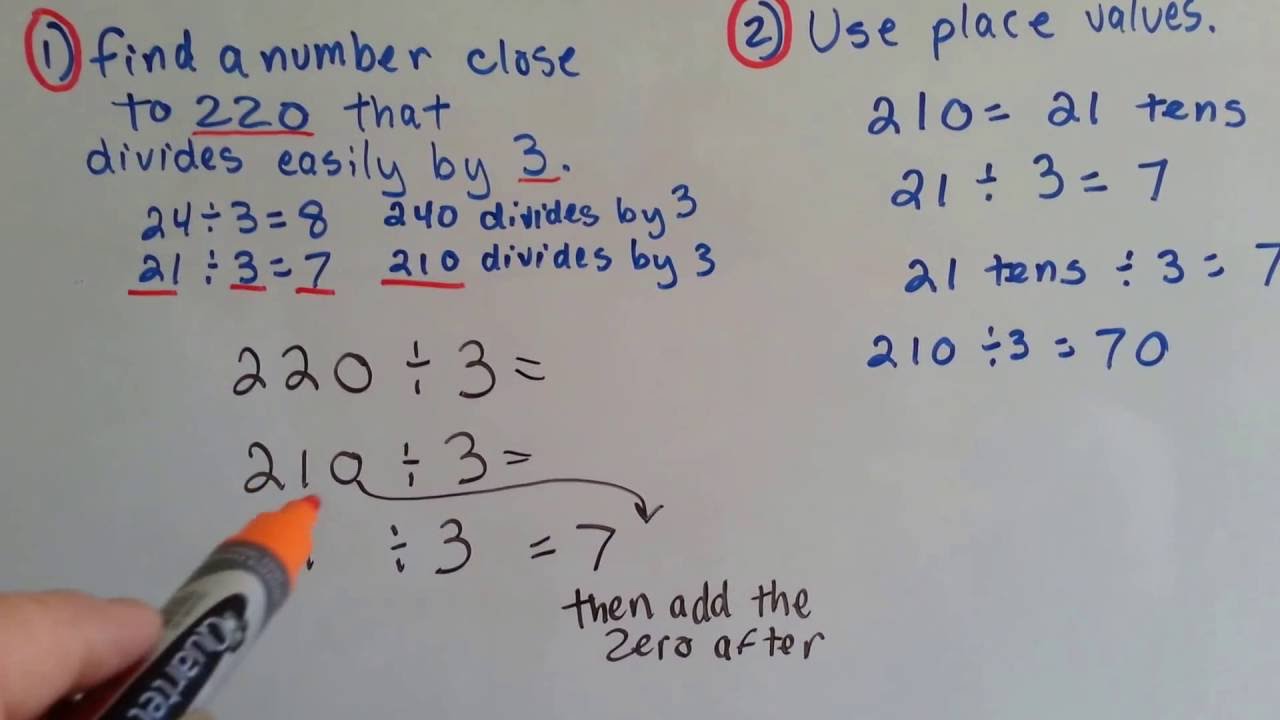 1) find a number close
to 220 that
divides easily by 3.
24 ÷ 3 = 8 240 divides by 3
21 ÷ 3 = 7 210 divides by 3
220 ÷ 3 =
210 ÷ 3 =
÷ 3 = 7
then add the
zero after
2) Use place values.
210 = 21 tens
21 ÷ 3 = 7
21 tens ÷ 3 = 7
210 ÷ 3 = 70
Quartet